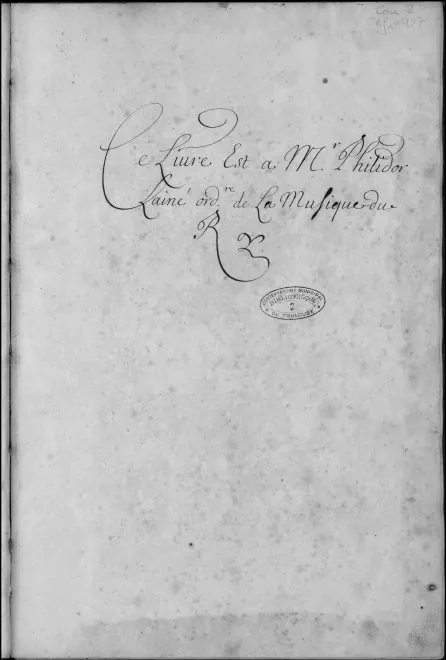 Ce Livre Est a M.r Philidor
Lainé ord.re de La Musique du
R
CONSERVATOIRE MUNICIPAL
BIBLIOTHEQUE
DE TOULOUSE